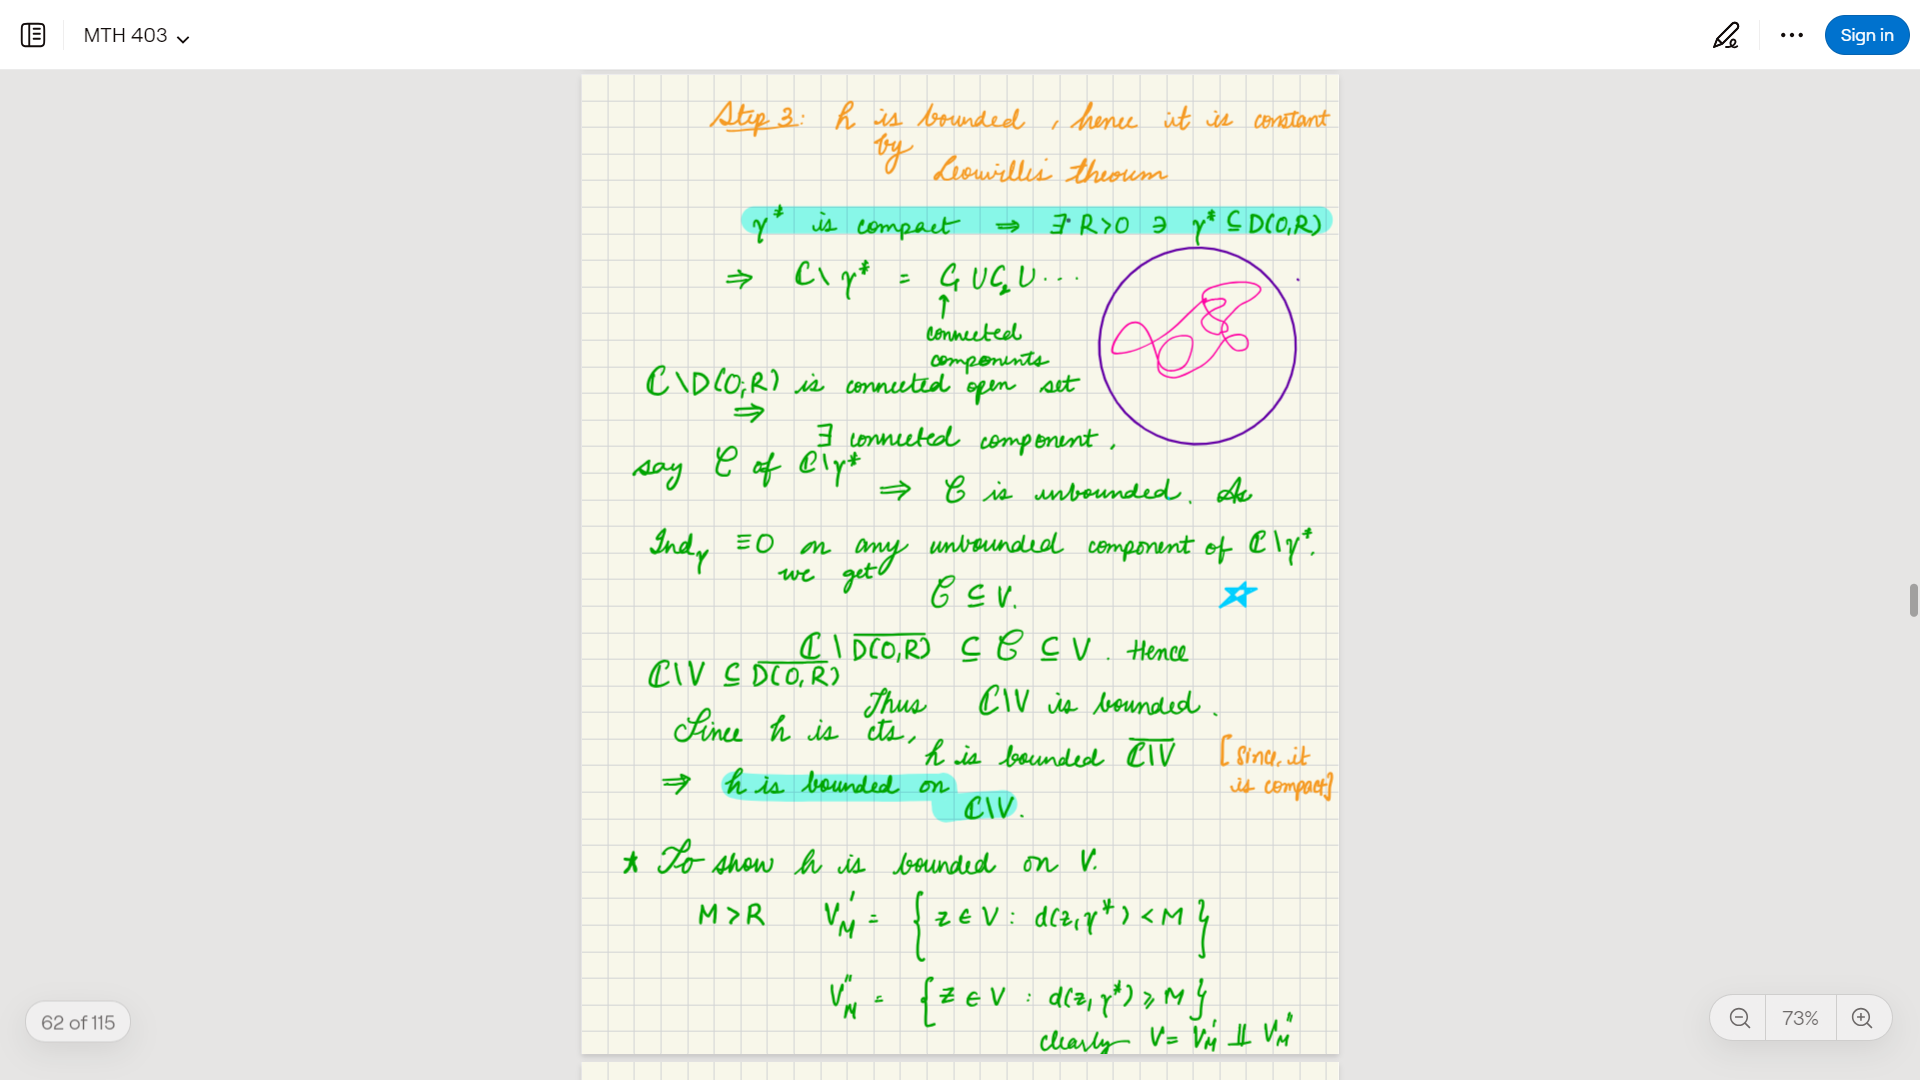 MTH 403
Sign in
Step 3: h is bounded, hence it is constant
by
Leouvilli's theorum
γ* is compact ⇒ ∃ R>0 ∋ γ* ⊆ D(0,R)
⇒ ℂ\γ* = C₁ ∪ C₂ ∪ ...
↑
connected
components
ℂ\D(0,R) is connected open set
⇒
∃ connected component,
say 𝒞 of ℂ\γ*
⇒ 𝒞 is unbounded. As
Ind_γ ≡ 0 on any unbounded component of ℂ\γ*.
we get
𝒞 ⊆ V.
ℂ \ \overline{D(0,R)} ⊆ 𝒞 ⊆ V. Hence
ℂ\V ⊆ \overline{D(0,R)}
Thus ℂ\V is bounded.
Since h is cts,
h is bounded \overline{ℂ\V} [Since, it
is compact]
⇒ h is bounded on
ℂ\V.
* To show h is bounded on V.
M > R V'_M = { z ∈ V : d(z, γ*) < M }
V''_M = { z ∈ V : d(z, γ*) ⩾ M }
clearly V = V'_M ⨿ V''_M
62 of 115
73%